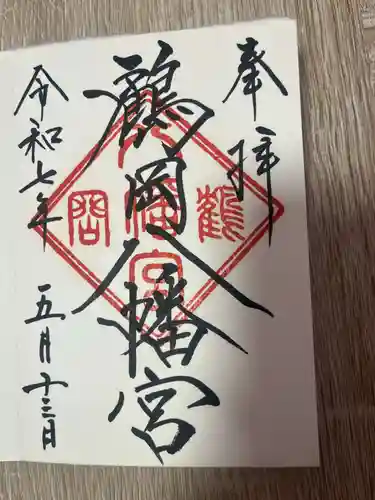 奉拝
鶴岡八幡宮
令和七年
五月十三日
八幡宮
鶴
岡